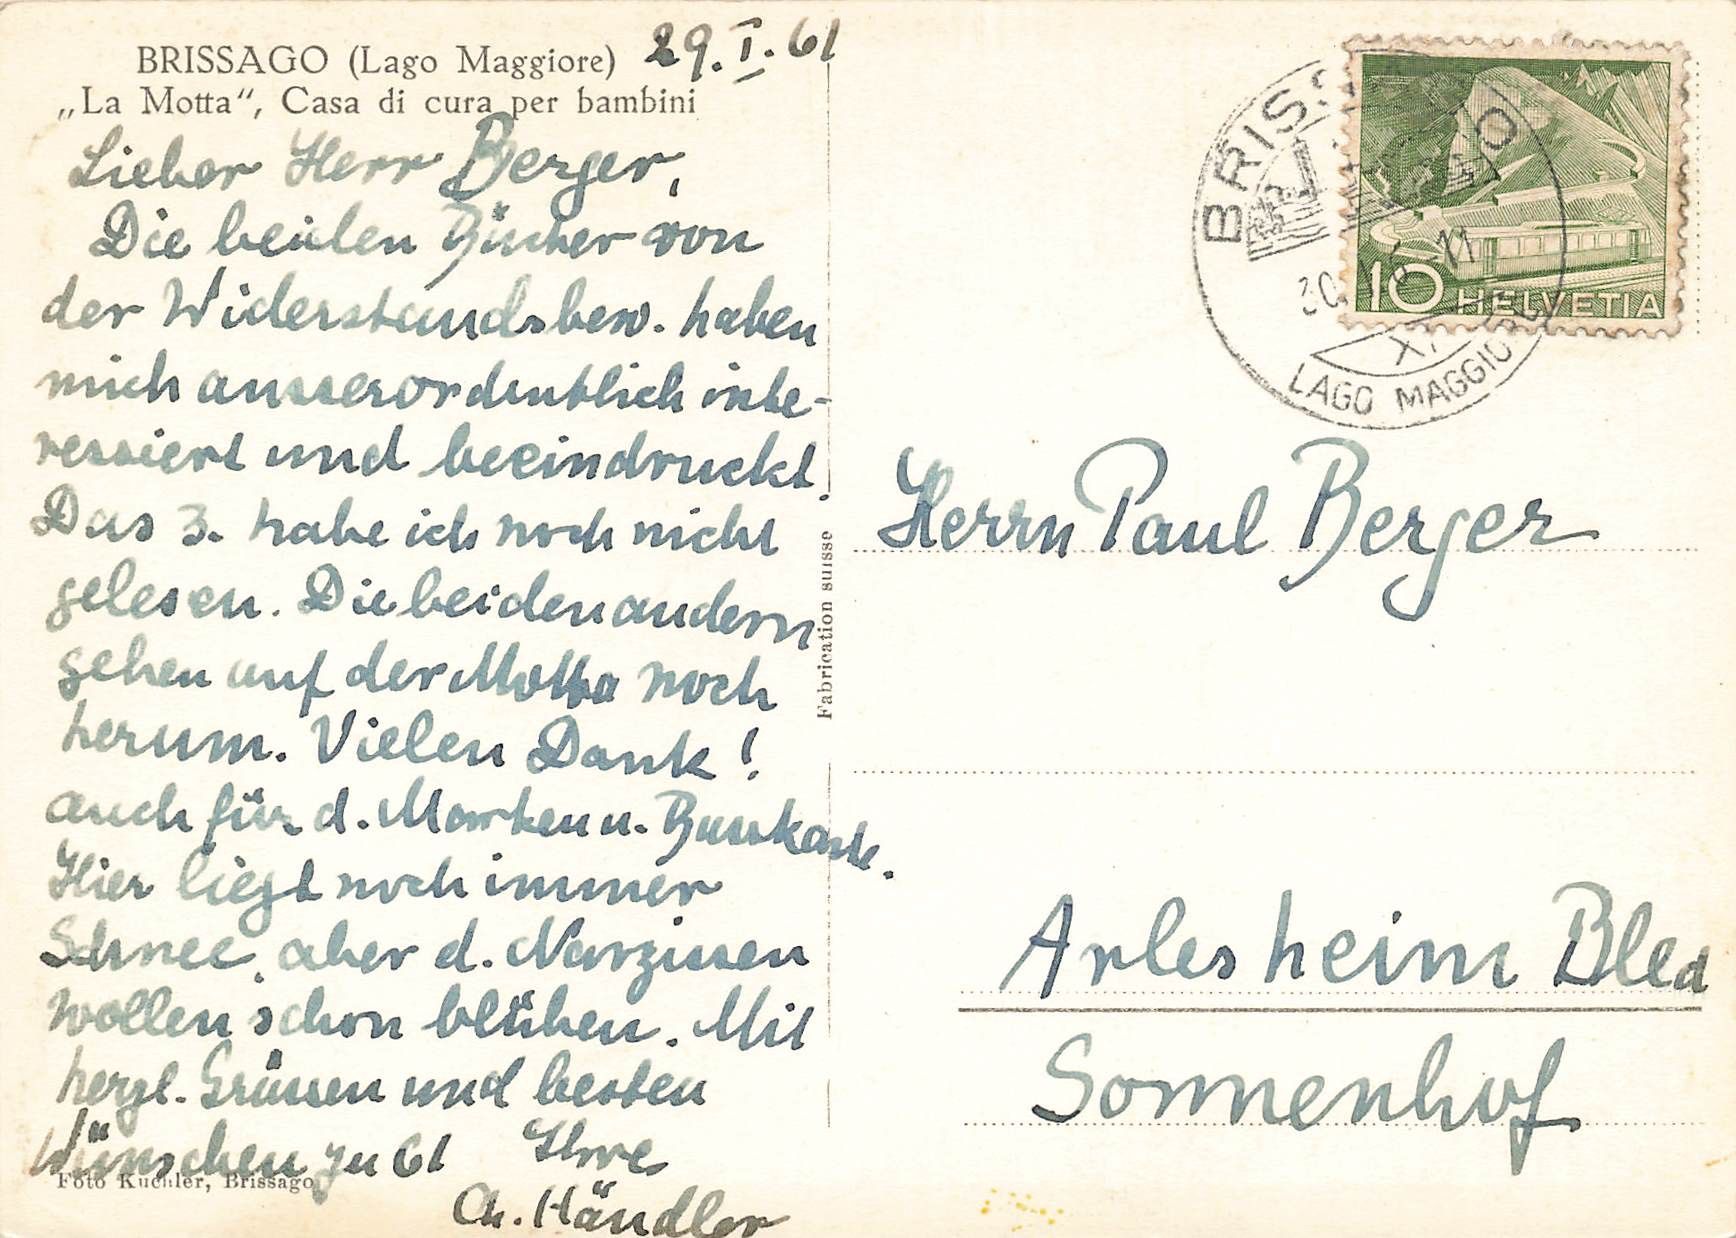 BRISSAGO (Lago Maggiore)
„La Motta“, Casa di cura per bambini
29. I. 61
Lieber Herr Berger,
Die beiden Bücher von
der Widerstandsbew. haben
mich ausserordentlich inte-
ressiert und beeindruckt.
Das 3. habe ich noch nicht
gelesen. Die beiden andern
gehen auf der Motta noch
herum. Vielen Dank!
auch für d. Marken u.
Hier liegt noch immer
Schnee, aber d. Narzissen
wollen schon blühen. Mit
herzl. Grüssen und besten
Wünschen zu 61 Ihre
Ch. Händler
Foto Kuchler, Brissago
Fabrication suisse
BRISSAGO
LAGO MAGGIORE
10 HELVETIA
Herrn Paul Berger
Arlesheim Bld
Sonnenhof